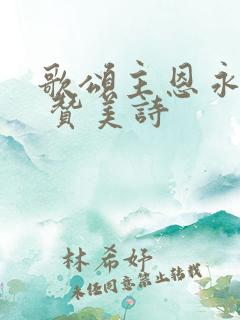 歌頌主恩永
贊美詩
林希妤
未经同意禁止转载